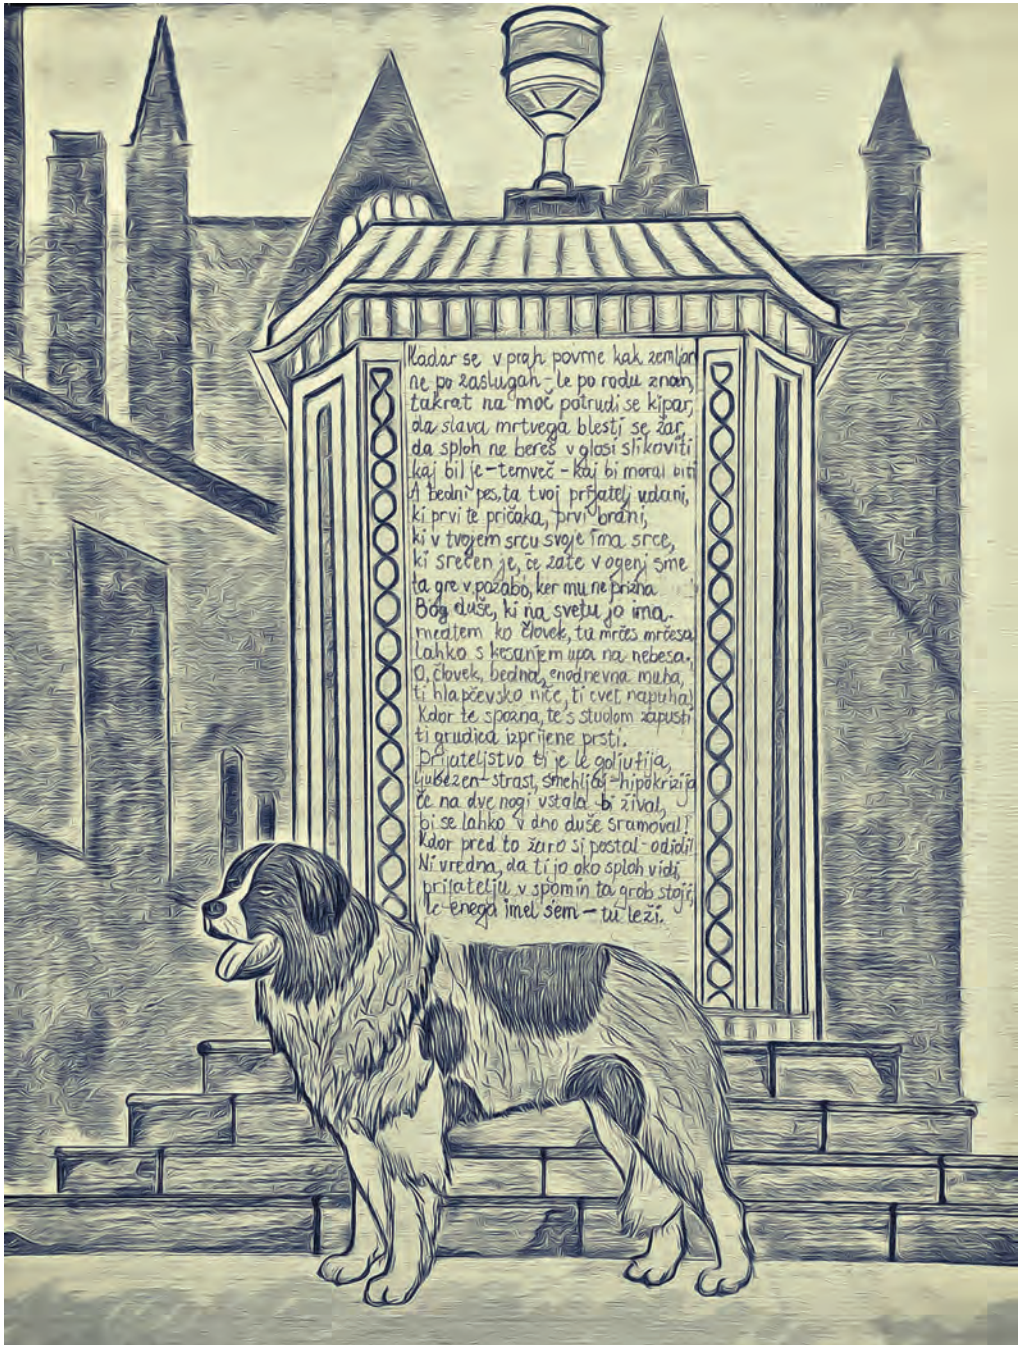 Kadar se v prah povrne kak zemljan
ne po zaslugah - le po rodu znan,
takrat na moč potrudi se kipar,
da slava mrtvega blesti se žar,
da sploh ne bereš v glosi slikoviti
kaj bil je - temveč - kaj bi moral biti
A bedni pes, ta tvoj prijatelj udani,
ki prvi te pričaka, prvi brani,
ki v tvojem srcu svoje ima srce,
ki srečen je, če zate v ogenj sme
ta gre v pozabo, ker mu ne prizna
Bog duše, ki na svetu jo ima.
medtem ko človek, ta mrčes mrčesa
lahko s kesanjem upa na nebesa.
O, človek, bedna, enodnevna muha,
ti hlapčevsko niče, ti cvet napuha!
Kdor te spozna, te s studom zapusti
ti grudica izprijene prsti.
Prijateljstvo ti je le goljufija,
ljubezen - strast, smehljaj - hipokrizija
če na dve nogi vstala bi žival,
bi se lahko v dno duše sramoval!
Kdor pred to žaro si postal - odidi!
Ni vredna, da ti jo oko sploh vidi,
prijatelju v spomin ta grob stoji,
le enega imel sem - tu leži.